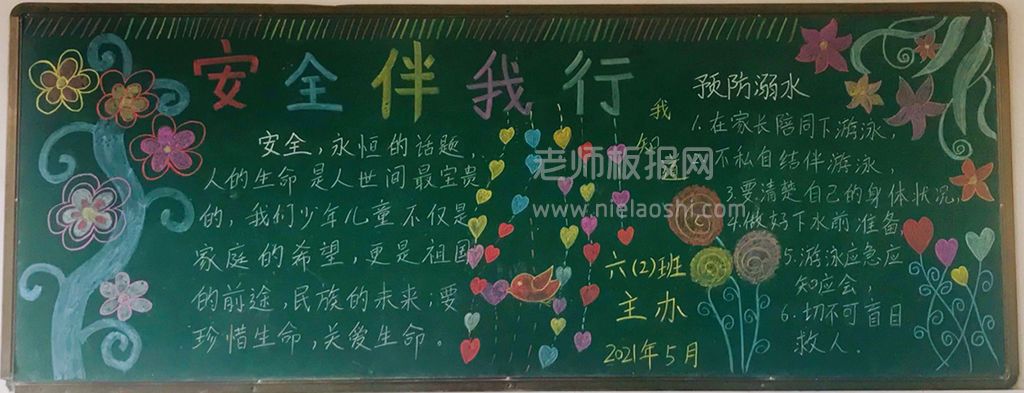 安全伴我行
安全,永恒的话题,
人的生命是人世间最宝贵
的,我们少年儿童不仅是
家庭的希望,更是祖国
的前途,民族的未来;要
珍惜生命,关爱生命。
我
知
道
六(2)班
主办
2021年5月
预防溺水
1.在家长陪同下游泳,
不私自结伴游泳,
3.要清楚自己的身体状况,
4.做好下水前准备
5.游泳应急应
知应会,
6.切不可盲目
救人.
老师板报网
www.nielaoshi.com